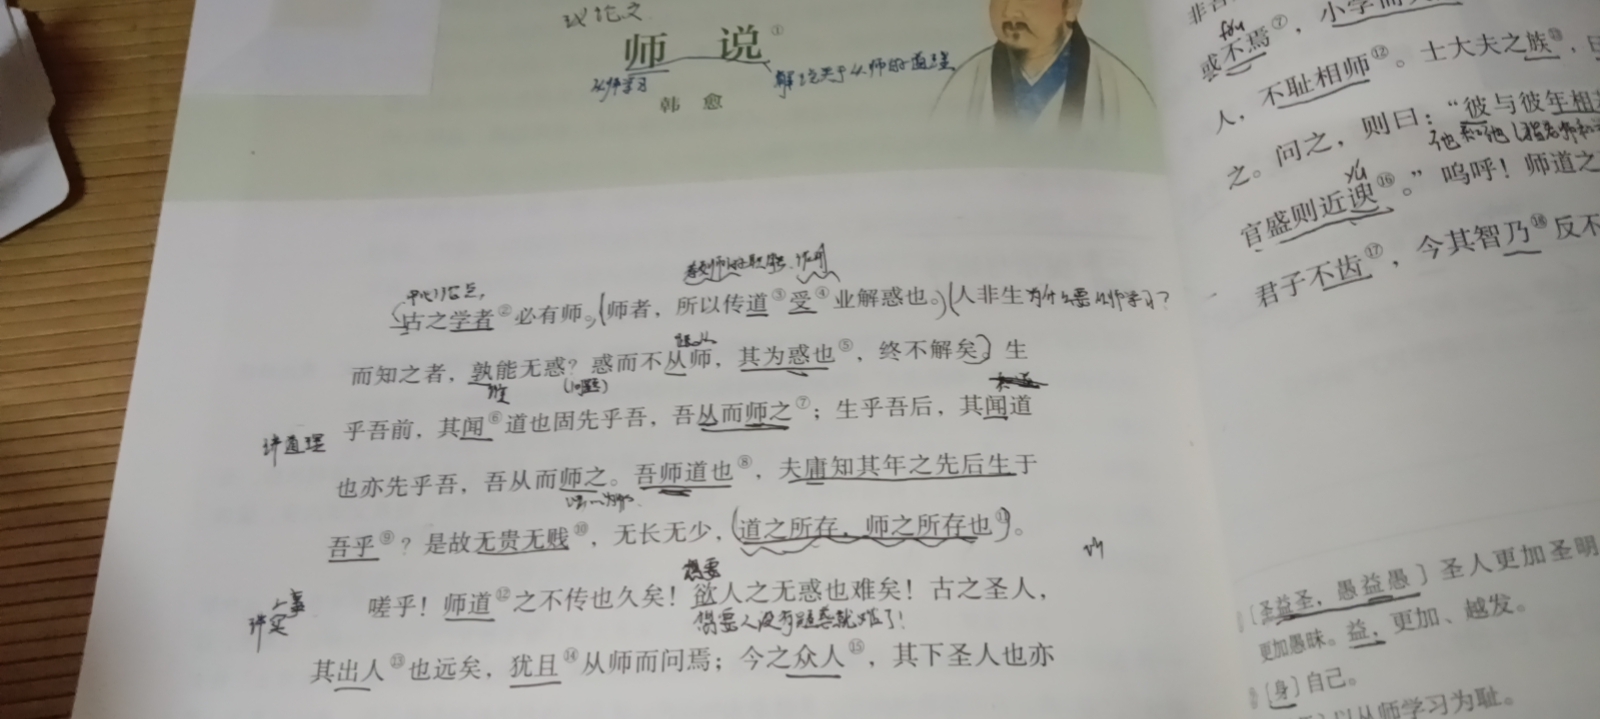 议论文
师 说①
从师学习
解说关于从师的道理
韩 愈
中心论点
老师的职能、作用
古之学者②必有师。(师者，所以传道③受④业解惑也。)(人非生
为什么要从师学习？
而知之者，孰能无惑？惑而不从师，其为惑也⑤，终不解矣)。生
谁
(问题)
乎吾前，其闻⑥道也固先乎吾，吾从而师之⑦；生乎吾后，其闻道
讲道理
也亦先乎吾，吾从而师之。吾师道也⑧，夫庸知其年之先后生于
吾乎⑨？是故无贵无贱⑩，无长无少，(道之所存，师之所存也⑪)。
想要
嗟乎！师道⑫之不传也久矣！欲人之无惑也难矣！古之圣人，
讲
想要人没有疑惑就难了！
其出人⑬也远矣，犹且⑭从师而问焉；今之众人⑮，其下圣人也亦
fǒu
或不焉⑦，小学而
人，不耻相师⑫。士大夫之族⑬，
之。问之，则曰：“彼与彼年相
他和他
yú
官盛则近谀⑯。”呜呼！师道之
君子不齿⑰，今其智乃⑱反不
[圣益圣，愚益愚]圣人更加圣明
更加愚昧。益，更加、越发。
[身]自己。
以从师学习为耻。